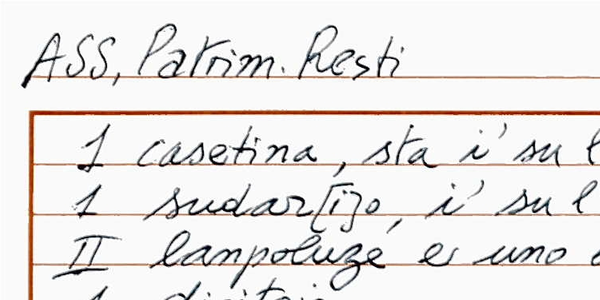 ASS, Patrim. Resti
1 casetina, sta i' su l
1 sudar[i]o, i' su l
II lanpoluze e uno
1